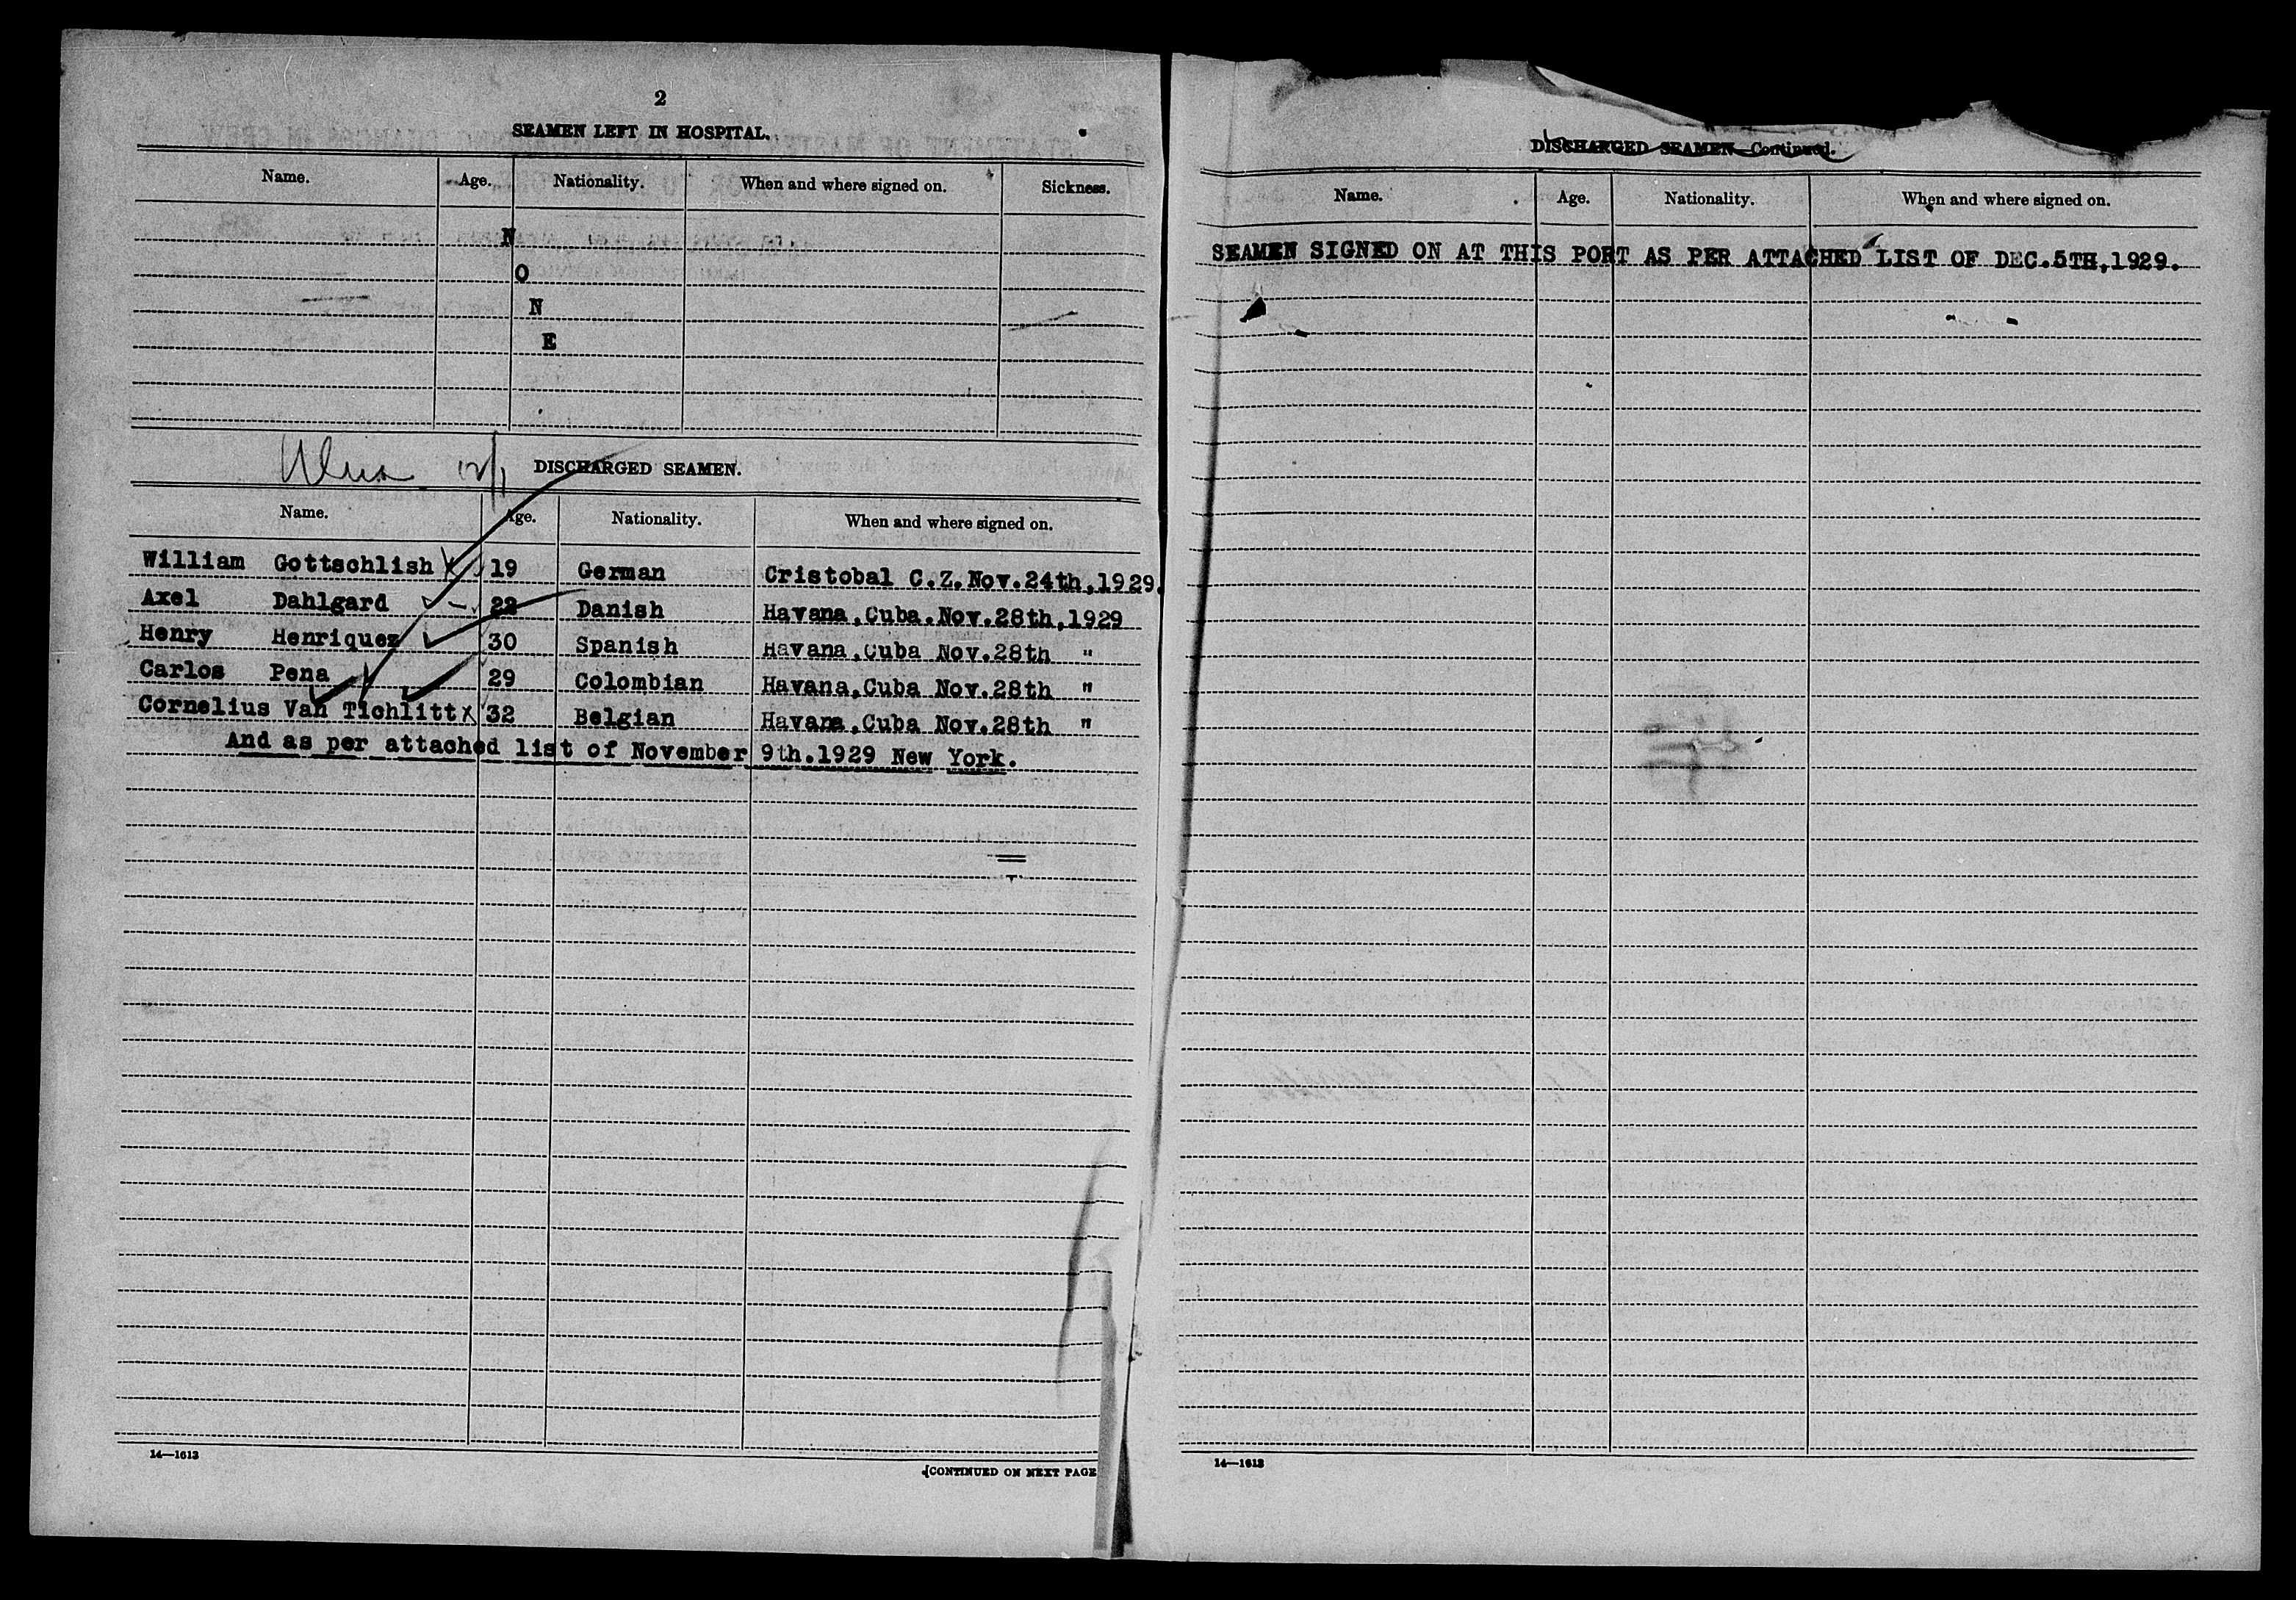 2
SEAMEN LEFT IN HOSPITAL.
Name. Age. Nationality. When and where signed on. Sickness.
N
O
N
E
12/1 DISCHARGED SEAMEN.
Name. Age. Nationality. When and where signed on.
William Gottschlish 19 German Cristobal C.Z.Nov.24th,1929.
Axel Dahlgard 22 Danish Havana,Cuba.Nov.28th,1929
Henry Henriquez 30 Spanish Havana,Cuba Nov.28th "
Carlos Pena 29 Colombian Havana,Cuba Nov.28th "
Cornelius Van Tichlitt 32 Belgian Havana,Cuba Nov.28th "
And as per attached list of November 9th.1929 New York.
14—1613
(CONTINUED ON NEXT PAGE
DISCHARGED SEAMEN—Continued.
Name. Age. Nationality. When and where signed on.
SEAMEN SIGNED ON AT THIS PORT AS PER ATTACHED LIST OF DEC.5TH,1929.
14—1613